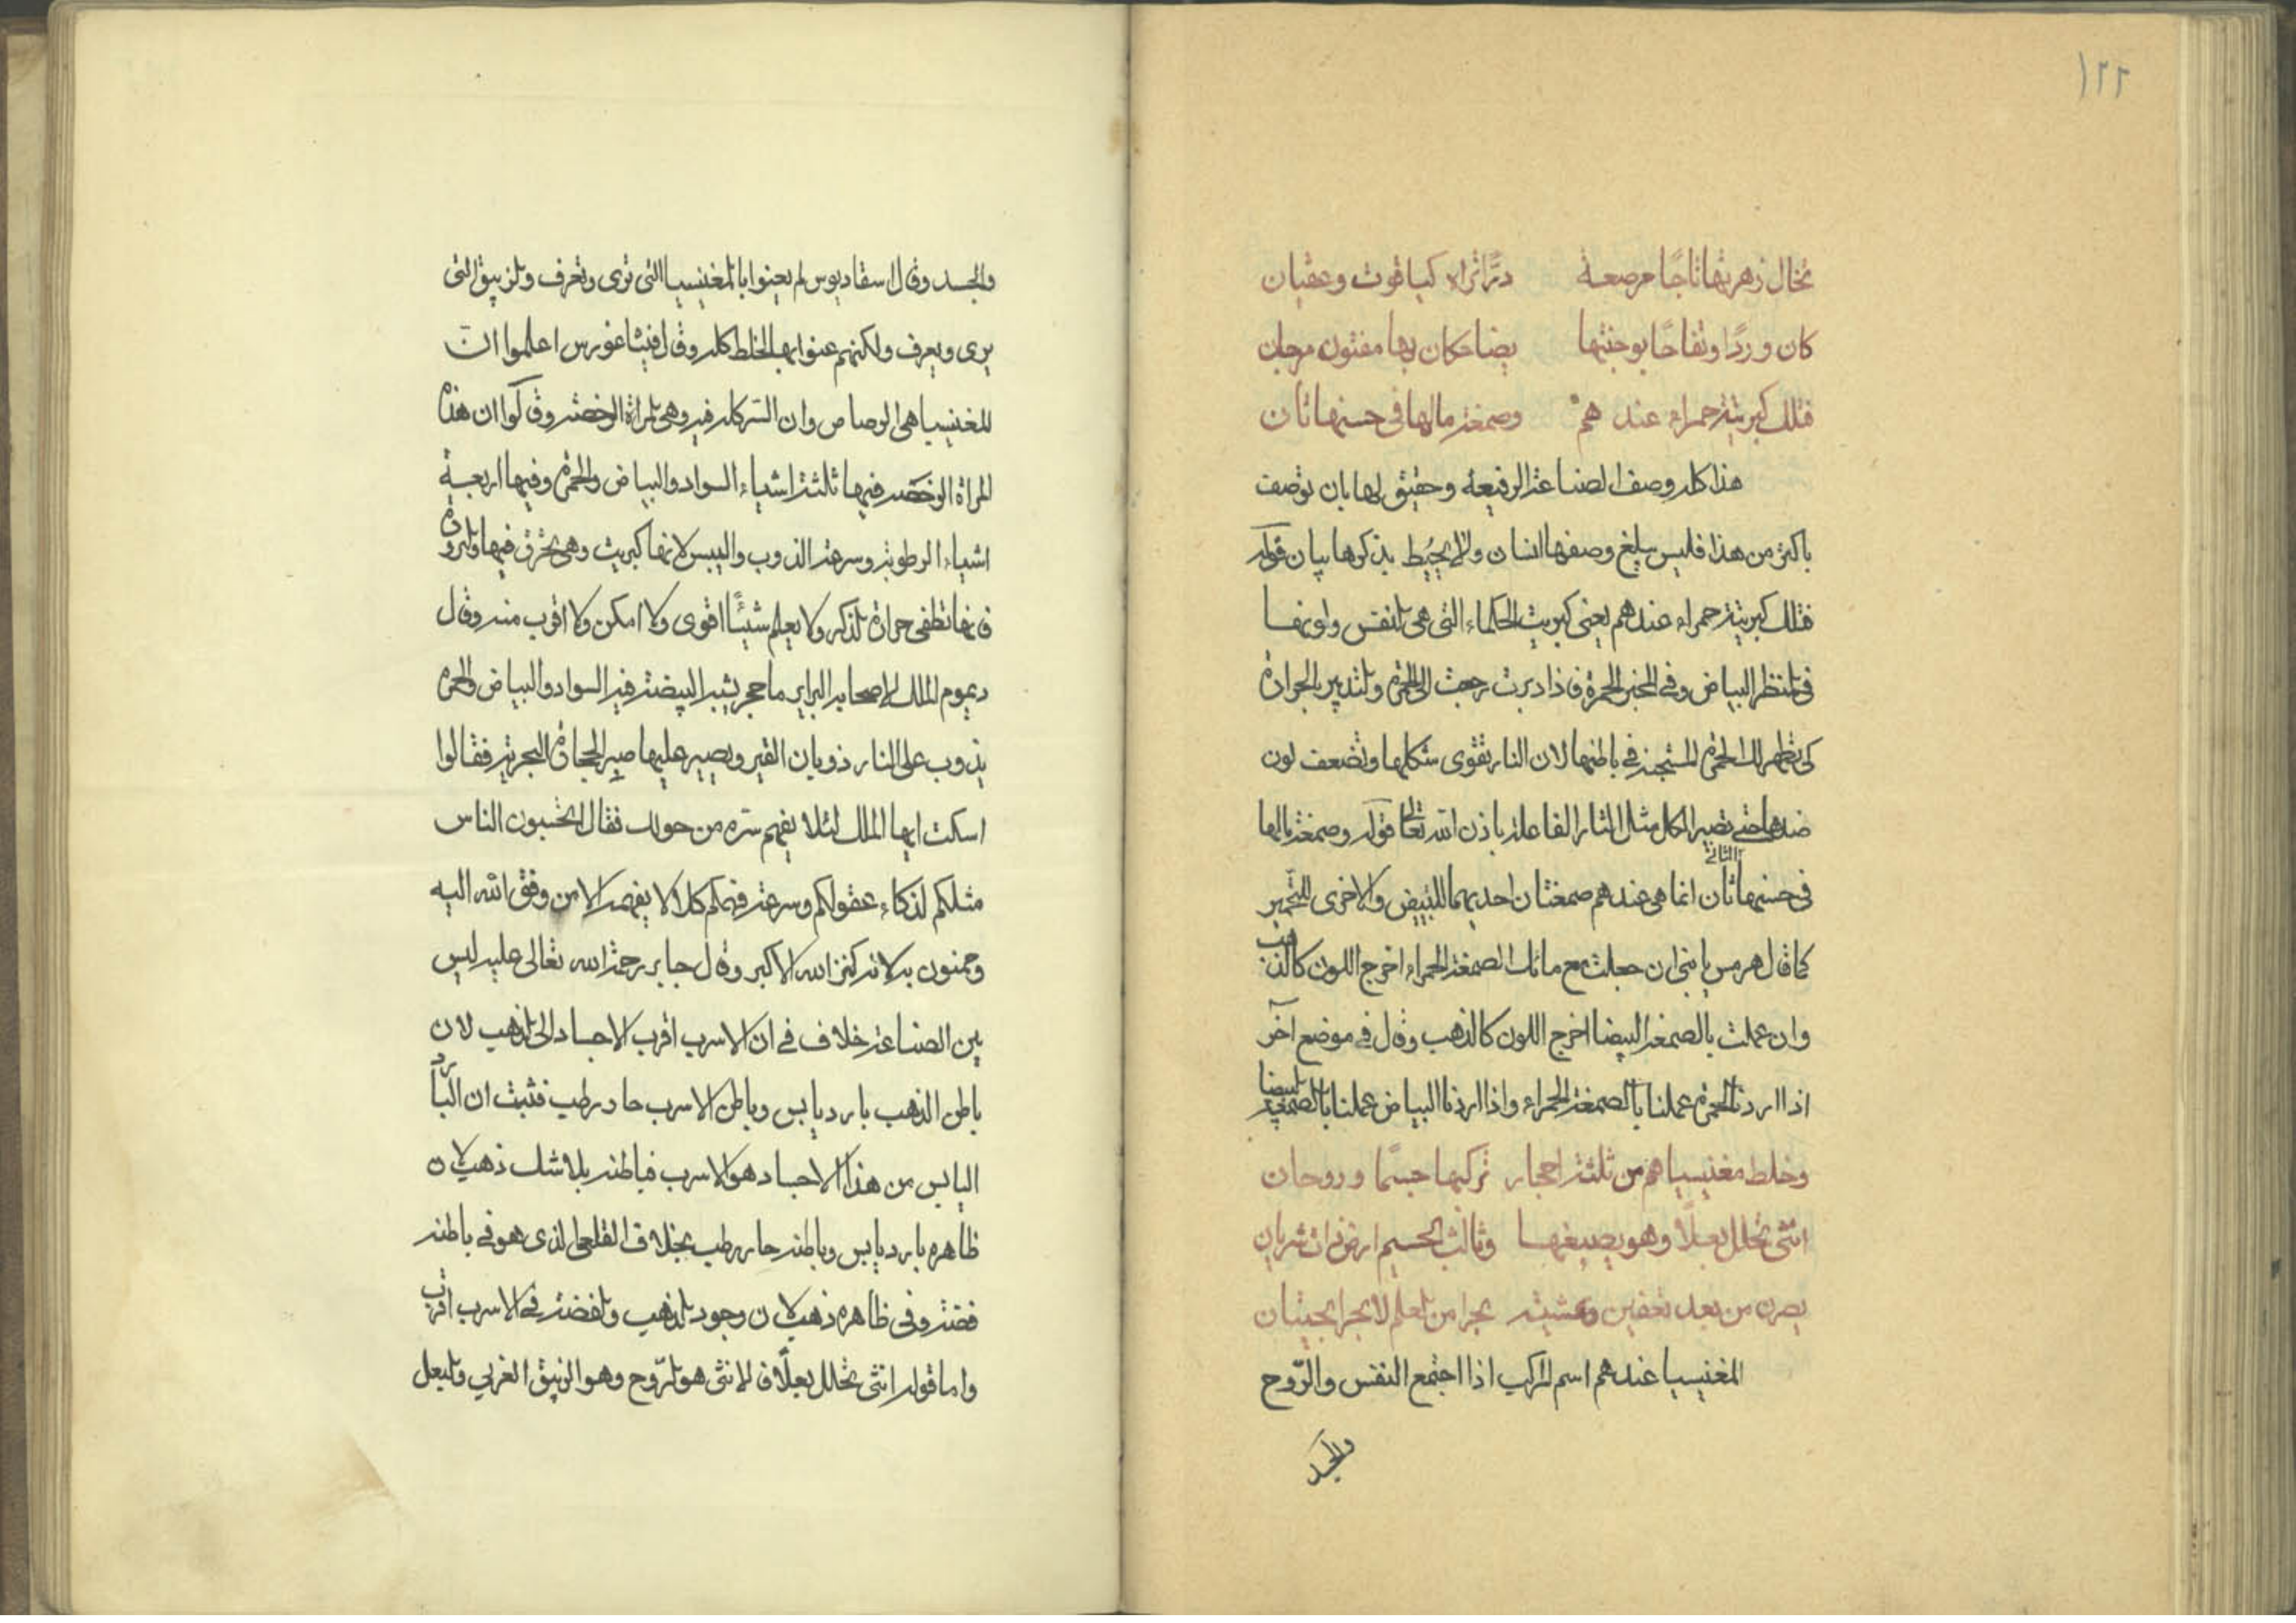 ١٢٢
تخال زهرتها تاجًا مرصعة درًّا تراه كياقوت وعقيان
كان وردًا وتفاحًا بوجنتها بيضا حكان بها مفتون مرجان
فتلك كبريتة حمراء عندهم وصمغة مالها في حسنها ثان
هذا كله وصف الصناعة الرفيعة وحقيق لها بان توصف
باكثر من هذا فليس يبلغ وصفها انسان ولا يحيط بذكرها بيان قوله
فتلك كبريتة حمراء عندهم يعني كبريت الحكماء التي هي النفس ولونها
في المنظر البياض وفي المخبر الحمرة فاذا دبرت رجعت الى الحمرة والتدبير بالحرارة
كي تظهر لك الحمرة المستجنة في باطنها لان النار تقوى شكلها وتضعف لون
ضدها حتى تصير الكل مثال النار الفاعلة باذن الله تعالى قوله وصمغة مالها
في حسنها ثان انما هي عندهم صمغتان احديهما للتبييض والاخرى للتحمير
كما قال هرمس يا بني ان جعلت مع مائك الصمغة الحمراء اخرج اللون كالذهب
وان عملت بالصمغة البيضا اخرج اللون كالذهب وقال في موضع آخر
اذا اردنا الحمرة عملنا بالصمغة الحمراء واذا اردنا البياض عملنا بالصمغة البيضا
وخلط مغنيسياهم من ثلثة احجار تركيبها جسمًا وروحان
انثى تحلل بعلًا وهو يصبغها وثالث الجسم ارض ذات شريان
يصرن من بعد تعفين وتمشية بحرا من العلم لا بحرا بحيتان
المغنيسيا عندهم اسم المركب اذا اجتمع النفس والرّوح
والجسد
والجسد وقال اسفاديوس لم يعنوا بالمغنيسيا التي ترى وتعرف والزيبق التي
يرى ويعرف ولكنهم عنوا بها الخلط كله وقال فيثاغورس اعلموا ان
المغنيسيا هي الرصاص وان السر كله فيه وهي المراة الرخصة وذكروا ان هذه
المراة الرخصة فيها ثلثة اشياء السواد والبياض والحمرة وفيها اربعة
اشياء الرطوبة وسرعة الذوب واليبس لانها كبريت وهي تحترق فيها والبرودة
فانها تطفي حرارة الذكر ولا يعلم شيئًا اقوى ولا امكن ولا اقرب منه وقال
ديموم الملك لاصحابه البرابر ما حجر يشبه البيضة فيه السواد والبياض والحمرة
يذوب على النار ذوبان القير ويصبر عليها صبر الحجارة البحرية فقالوا
اسكت ايها الملك لئلا يفهم سره من حولك فقال اتحسبون الناس
مثلكم لذكاء عقولكم وسرعة فهمكم كلا لا يفهمه الا من وفق الله اليه
وحمنون به لانه كنز الله الاكبر وقال جابر رحمة الله تعالى عليه ليس
بين الصناعة خلاف في ان الاسرب اقرب الاجساد الى الذهب لان
باطن الذهب بارد يابس وباطن الاسرب حار رطب فثبت ان البارد
اليابس من هذا الاجساد هو الاسرب فباطنه بلا شك ذهب لان
ظاهره بارد يابس وباطنه حار رطب بخلاف القلعي الذي هو في باطنه
فضة وفي ظاهره ذهب لان وجود الذهب والفضة في الاسرب اقرب
واما قوله انثى تحلل بعلًا فالانثى هو الرّوح وهو الزيبق الغربي والبعل